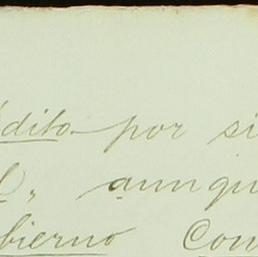 édito por si
aunqu
bierno Con